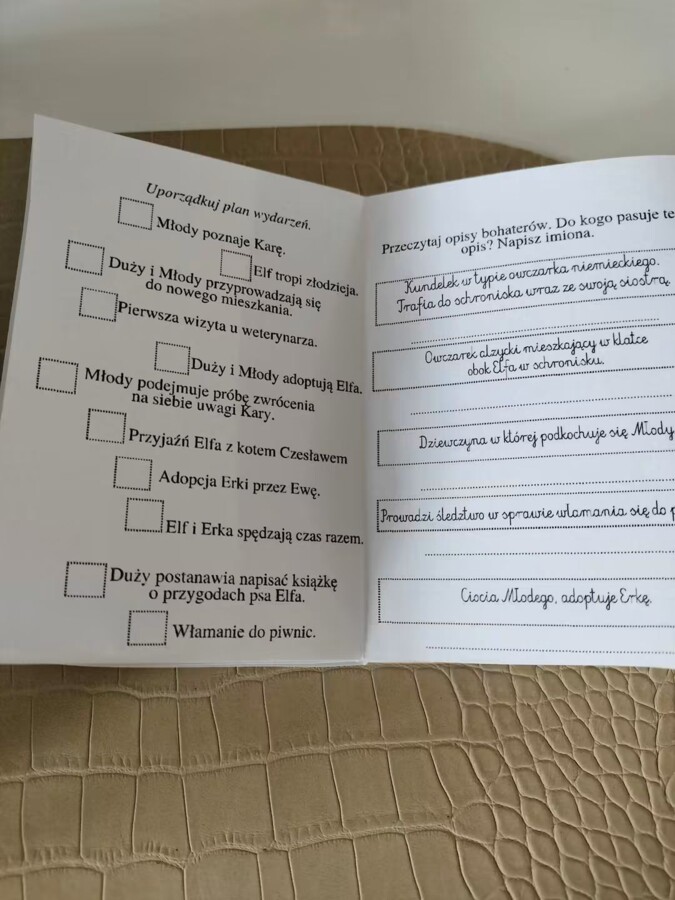 Uporządkuj plan wydarzeń.
Młody poznaje Karę.
Elf tropi złodzieja.
Duży i Młody przyprowadzają się
do nowego mieszkania.
Pierwsza wizyta u weterynarza.
Duży i Młody adoptują Elfa.
Młody podejmuje próbę zwrócenia
na siebie uwagi Kary.
Przyjaźń Elfa z kotem Czesławem
Adopcja Erki przez Ewę.
Elf i Erka spędzają czas razem.
Duży postanawia napisać książkę
o przygodach psa Elfa.
Włamanie do piwnic.
Przeczytaj opisy bohaterów. Do kogo pasuje te
opis? Napisz imiona.
Kundelek w typie owczarka niemieckiego.
Trafia do schroniska wraz ze swoją siostrą.
Owczarek alzycki mieszkający w klatce
obok Elfa w schronisku.
Dziewczyna w której podkochuje się Młody
Prowadzi śledztwo w sprawie włamania się do p
Ciocia Młodego, adoptuje Erkę.